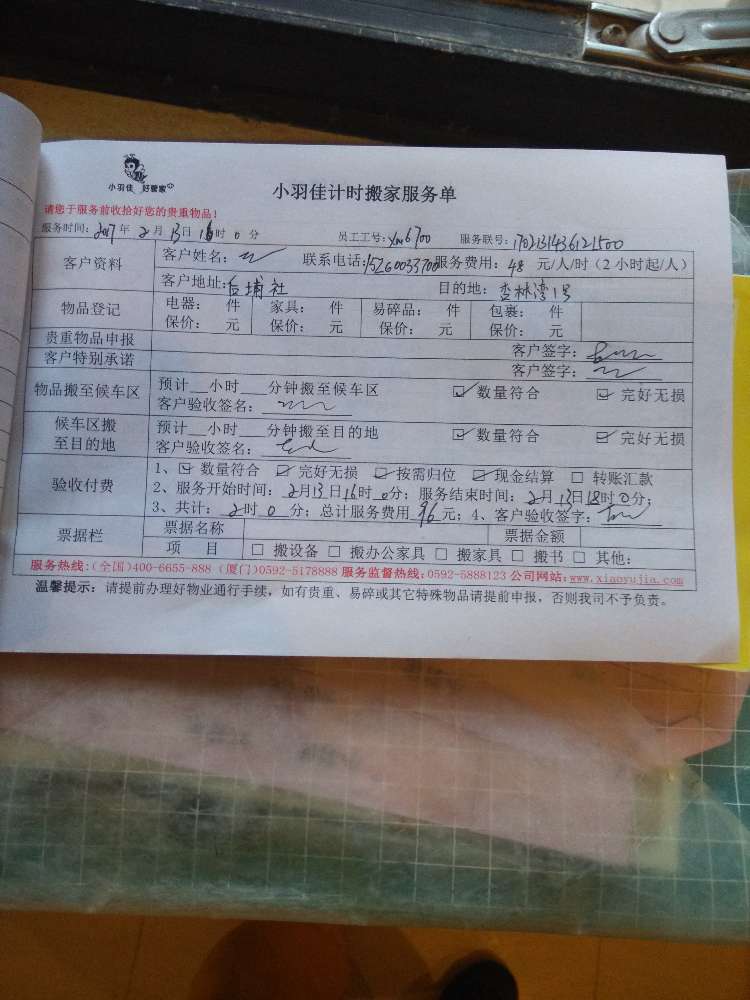 小羽佳 好管家
小羽佳计时搬家服务单
请您于服务前收拾好您的贵重物品!
服务时间: 2017年 2月 13日 16时 0分 员工工号: xm6700 服务联号: 1702131436121500
客户资料 客户姓名: 联系电话: 15260033700 服务费用: 48 元/人/时(2小时起/人)
客户地址: 后埔社 目的地: 杏林湾1号
物品登记 电器: 件 家具: 件 易碎品: 件 包裹: 件
保价: 元 保价: 元 保价: 元 保价: 元
贵重物品申报 客户签字:
客户特别承诺 客户签字:
物品搬至候车区 预计__小时___分钟搬至候车区 ☑数量符合 ☑完好无损
客户验收签名:
候车区搬至目的地 预计__小时___分钟搬至目的地 ☑数量符合 ☑完好无损
客户验收签名:
验收付费 1、☑数量符合 ☑完好无损 ☑按需归位 ☑现金结算 □转账汇款
2、服务开始时间: 2月13日16时0分; 服务结束时间: 2月13日18时0分;
3、共计: 2时 0分; 总计服务费用 96 元; 4、客户验收签字:
票据栏 票据名称 票据金额
项 目 □搬设备 □搬办公家具 □搬家具 □搬书 □其他:
服务热线:(全国)400-6655-888 (厦门)0592-5178888 服务监督热线:0592-5888123 公司网站:www.xiaoyujia.com
温馨提示: 请提前办理好物业通行手续, 如有贵重、易碎或其它特殊物品请提前申报, 否则我司不予负责。